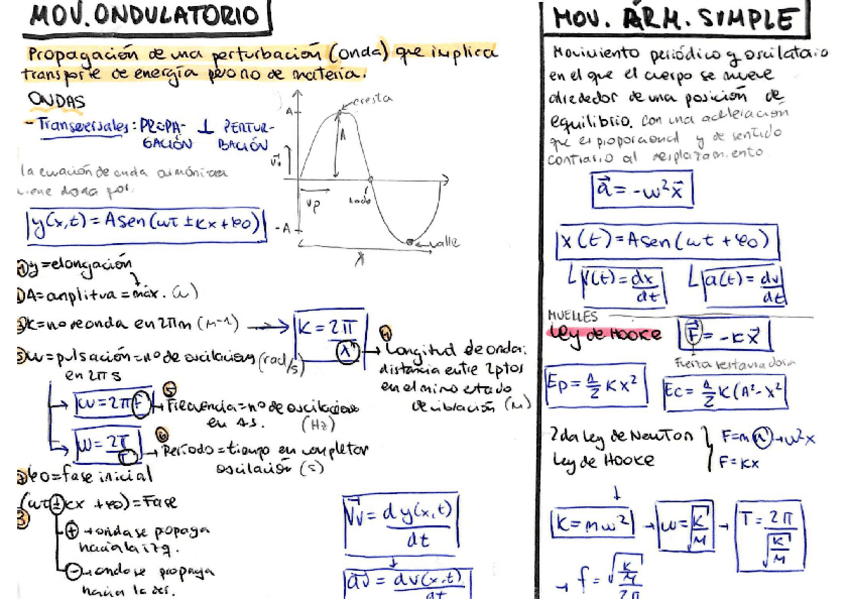 MOV. ONDULATORIO
Propagación de una perturbación (onda) que implica
transporte de energía pero no de materia.
ONDAS
- Transversales: PROPA- ⊥ PERTUR-
GACIÓN BACIÓN
la ecuación de onda armónica
viene dada por:
y(x,t) = A sen(ωt ± kx + φ0)
A
cresta
A
nodo
vp
-A
valle
λ
y = elongación
A = amplitud = máx. (m)
k = nº de onda en 2πm (m⁻¹) → K = 2π/λ
Longitud de onda:
distancia entre 2 ptos
en el mismo estado
de vibración (M)
ω = pulsación = nº de oscilaciones (rad/s)
en 2π s
ω = 2πF → Frecuencia = nº de oscilaciones
en 1 s. (Hz)
ω = 2π/T → Período = tiempo en completar
oscilación (s)
φ0 = fase inicial
(ωt ± kx + φ0) = Fase
+ → onda se propaga
hacia la izq.
- → onda se propaga
hacia la der.
Vv = dy(x,t)/dt
av = dv(x,t)/dt
MOV. ARM. SIMPLE
Movimiento periódico y oscilatorio
en el que el cuerpo se mueve
alrededor de una posición de
equilibrio, con una aceleración
que es proporcional y de sentido
contrario al desplazamiento
a = -ω²x
x(t) = A sen(ωt + φ0)
v(t) = dx/dt a(t) = dv/dt
MUELLES
Ley de HOOKE F = -Kx
Fuerza restauradora
Ep = 1/2 Kx² Ec = 1/2 K(A² - x²)
2da Ley de NEWTON F = m a → ω²x
Ley de HOOKE F = Kx
↓
K = mω² → ω = √(K/M) → T = 2π/√(K/M)
→ f = √(K/M)/2π